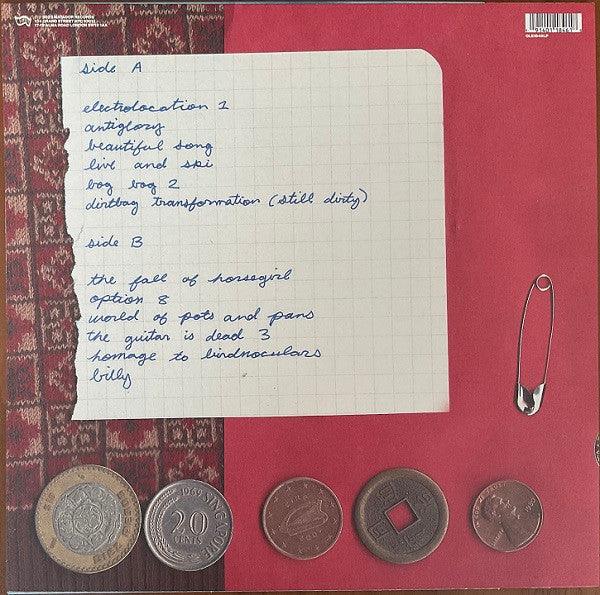 MATADOR RECORDS
side A
electrolocation 2
antiglory
beautiful song
live and ski
bog bog 2
dirtbag transformation (still dirty)
side B
the fall of horsegirl
option 8
world of pots and pans
the guitar is dead 3
homage to birdnoculars
billy
1969 SINGAPORE
20
CENTS